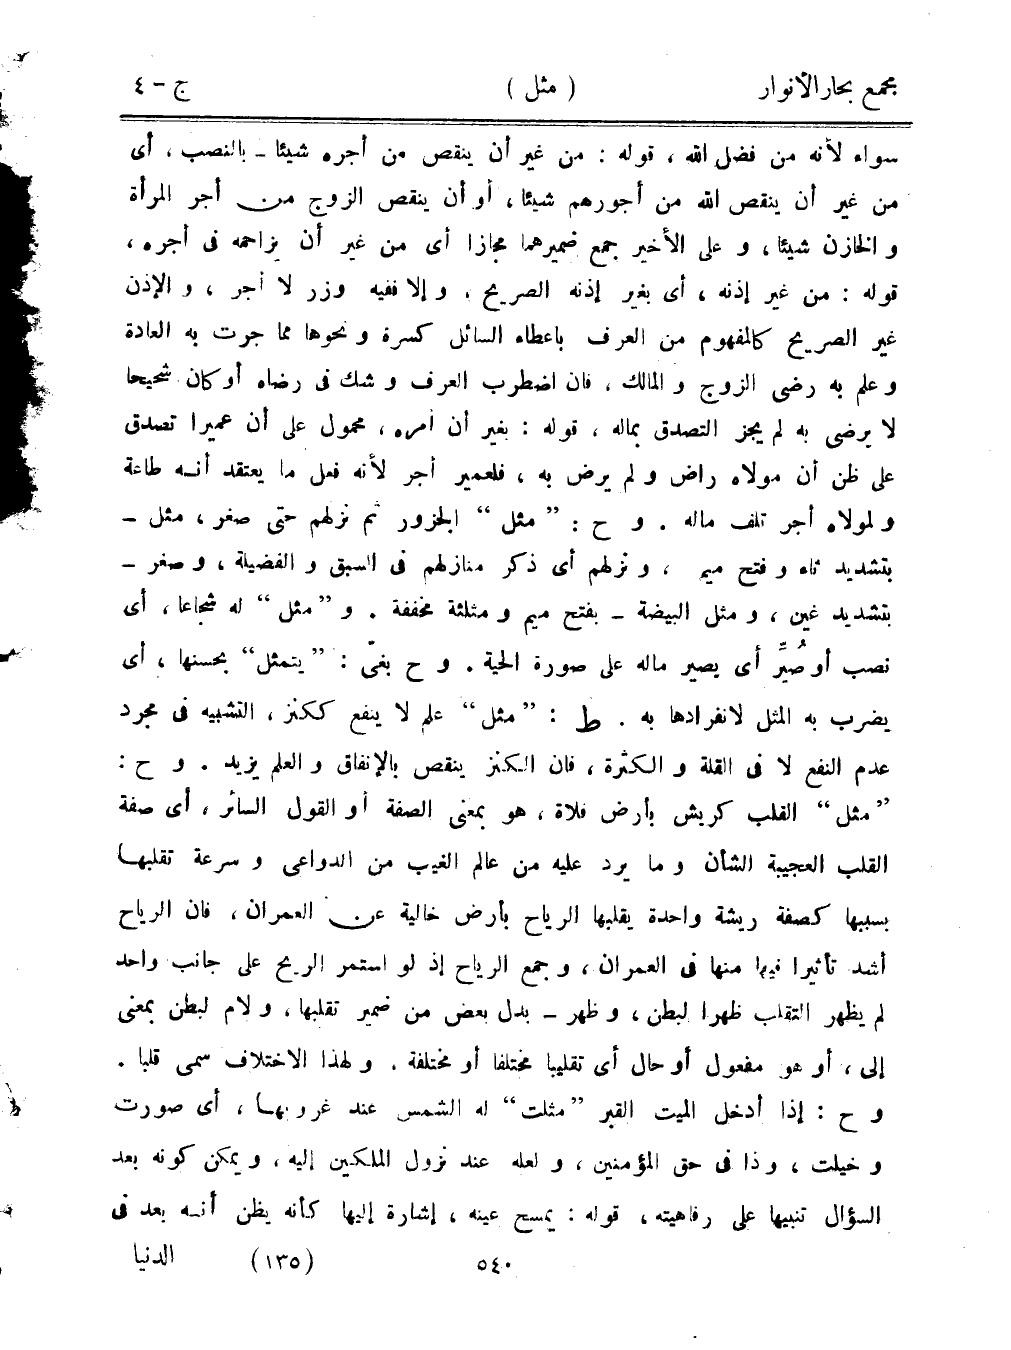 مجمع بحار الأنوار ( مثل ) ج - ٤
سواء لأنه من فضل الله ، قوله : من غير أن ينقص من أجره شيئا ـ بالنصب ، أى
من غير أن ينقص الله من أجورهم شيئا ، أو أن ينقص الزوج من أجر المرأة
و الخازن شيئا ، و على الأخير جمع ضميرهما مجازا أى من غير أن يزاحمه فى أجره ،
قوله : من غير إذنه ، أى بغير إذنه الصريح . و إلا ففيه وزر لا أجر ، و الإذن
غير الصريح كالمفهوم من العرف باعطاء السائل كسرة و نحوها مما جرت به العادة
و علم به رضى الزوج و المالك ، فان اضطرب العرف و شك فى رضاه أو كان شحيحا
لا يرضى به لم يجز التصدق بماله ، قوله : بغير أن أمره ، محمول على أن عميرا تصدق
على ظن أن مولاه راض و لم يرض به ، فلعمير أجر لأنه فعل ما يعتقد أنه طاعة
و لمولاه أجر تلف ماله . و ح : ” مثل “ الجزور ثم نزلهم حتى صغر ، مثل ـ
بتشديد ثاء و فتح ميم ، و نزلهم أى ذكر منازلهم فى السبق و الفضيلة ، و صغر ـ
بتشديد غين ، و مثل البيضة ـ بفتح ميم و مثلثة مخففة . و ” مثل “ له شجاعا ، أى
نصب أو صُيِّرَ أى يصير ماله على صورة الحية . و ح بغىّ : ” يتمثل “ بحسنها ، أى
يضرب به المثل لانفرادها به . ط : ” مثل “ علم لا ينفع ككنز ، التشبيه فى مجرد
عدم النفع لا فى القلة و الكثرة ، فان الكنز ينقص بالإنفاق و العلم يزيد . و ح :
” مثل “ القلب كريش بأرض فلاة ، هو بمعنى الصفة أو القول السائر ، أى صفة
القلب العجيبة الشأن و ما يرد عليه من عالم الغيب من الدواعى و سرعة تقلبها
بسببها كصفة ريشة واحدة يقلبها الرياح بأرض خالية عن العمران ، فان الرياح
أشد تأثيرا فيها منها فى العمران ، و جمع الرياح إذ لو استمر الريح على جانب واحد
لم يظهر التقلب ظهرا لبطن ، و ظهر ـ بدل بعض من ضمير تقلبها ، و لام لبطن بمعنى
إلى ، أو هو مفعول أو حال أى تقليبا مختلفا أو مختلفة . و لهذا الاختلاف سمى قلبا .
و ح : إذا أدخل الميت القبر ” مثلت “ له الشمس عند غروبها ، أى صورت
و خيلت ، و ذا فى حق المؤمنين ، و لعله عند نزول الملكين إليه ، و يمكن كونه بعد
السؤال تنبيها على رفاهيته ، قوله : يمسح عينه ، إشارة إليها كأنه يظن أنه بعد فى
٥٤٠ (١٣٥) الدنيا